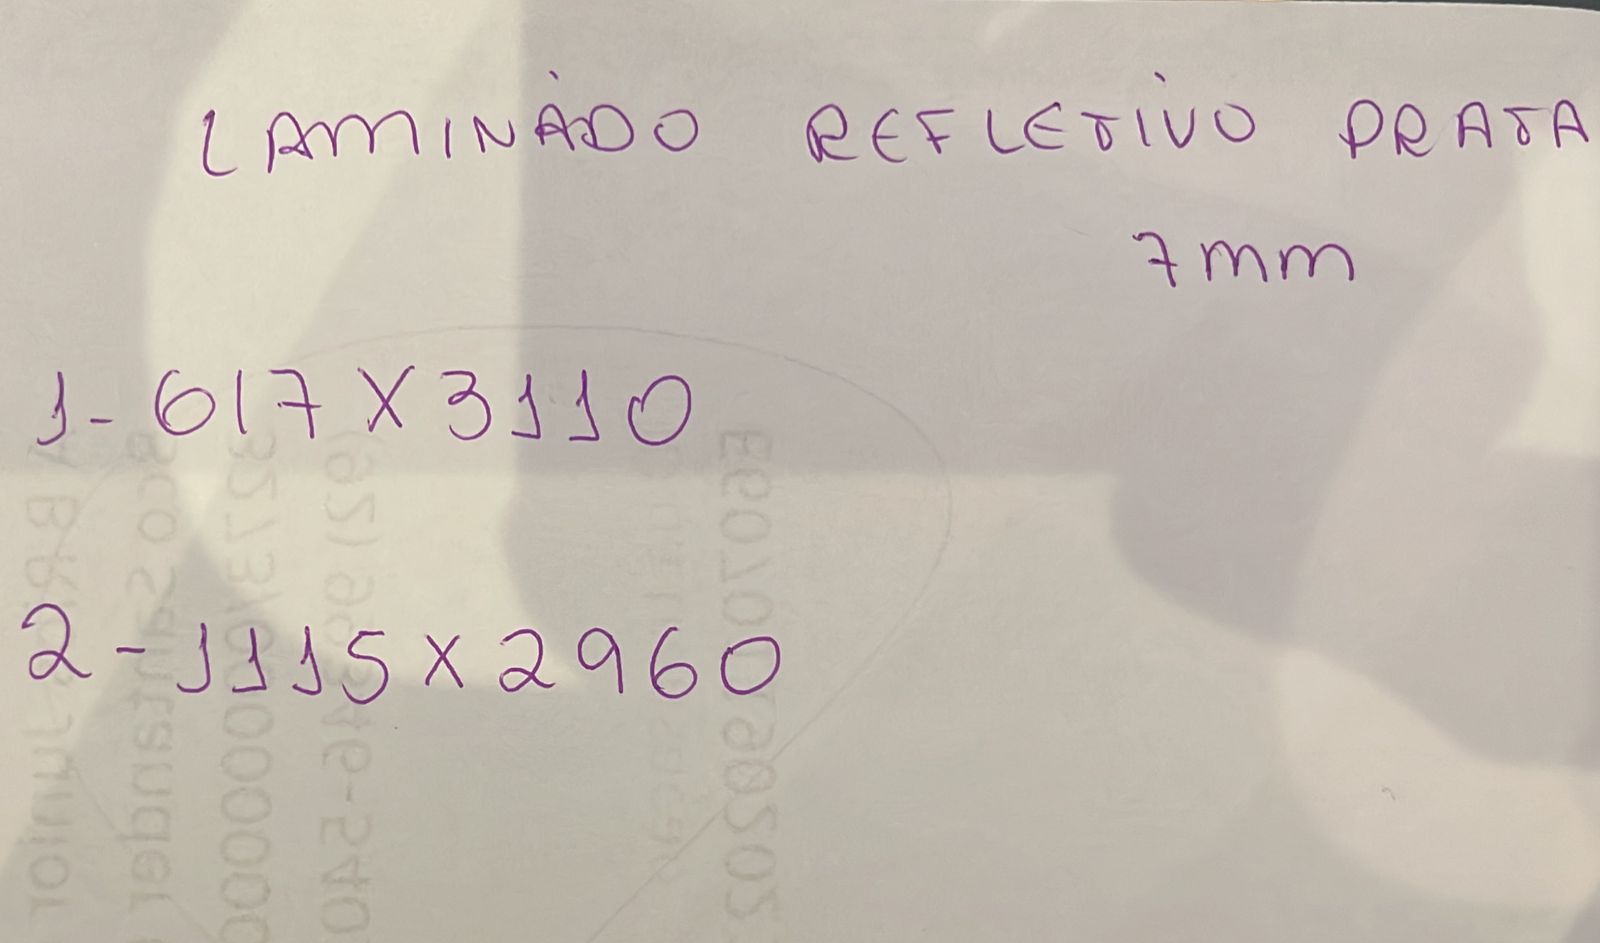 LAMINADO REFLETIVO PRATA
7mm
1-617X3110
2-1115x2960